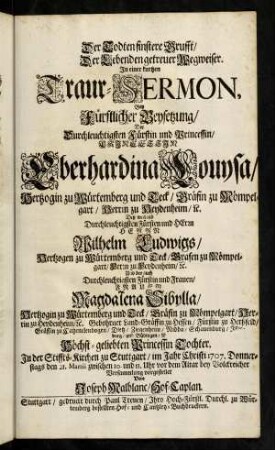 Der Todten finstere Grufft/
Der Lebenden getreuer Wegweiser.
In einer kurtzen
Traur-SERMON,
Bey
Fürstlicher Beysetzung/
Der
Durchleuchtigsten Fürstin und Princessin/
PRINCESSIN
Eberhardina Louysa/
Hertzogin zu Würtemberg und Teck/ Gräfin zu Mömpel-
gart/ Herrin zu Heydenheim/ &c.
Deß weiland
Durchleuchtigsten Fürsten und Herrn
HERRN
Wilhelm Ludwigs/
Hertzogen zu Würtemberg und Teck/ Grafen zu Mömpel-
gart/ Herrn zu Heydenheim/ &c.
Durchleuchtigsten Fürstin und Frauen/
FRAUEN
Magdalena Sibylla/
Hertzogin zu Würtemberg und Teck/ Gräfin zu Mömpelgart/ Her-
rin zu Heydenheim/ &c. Gebohrner Land-Gräfin zu Hessen/ Fürstin zu Herßfeld/
Gräfin zu Catzenelenbogen/ Dietz/ Ziegenhayn/ Nidda/ Schauenburg/ Ysen-
burg/ und Büdingen/ &c.
Höchst-geliebten Princessin Tochter.
In der Stiffts-Kirchen zu Stuttgart/ im Jahr Christi 1707. Donner-
stags den 21. Martii zwischen 10. und 11. Uhr vor dem Altar bey Volckreicher
Versammlung vorgestellet
Von
Joseph Malblanc/ Hof-Caplan.
Stuttgart/ gedruckt durch Paul Treuen/ Ihro Hoch-Fürstl. Durchl. zu Wür-
temberg bestellten Hof- und Cantzley-Buchdruckern.